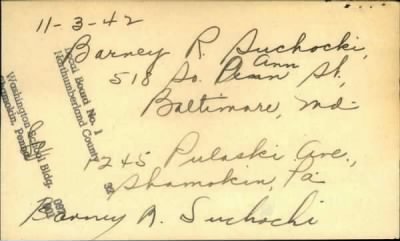 11-3-42
Barney R. Suchocki,
Ann
518 So. Dean St.,
Baltimore, Md.
1245 Pulaski Ave.,
Shamokin, Pa
Barney R. Suchocki
Local Board No. 1
Northumberland County
Washington School Bldg.
Shamokin, Penna.